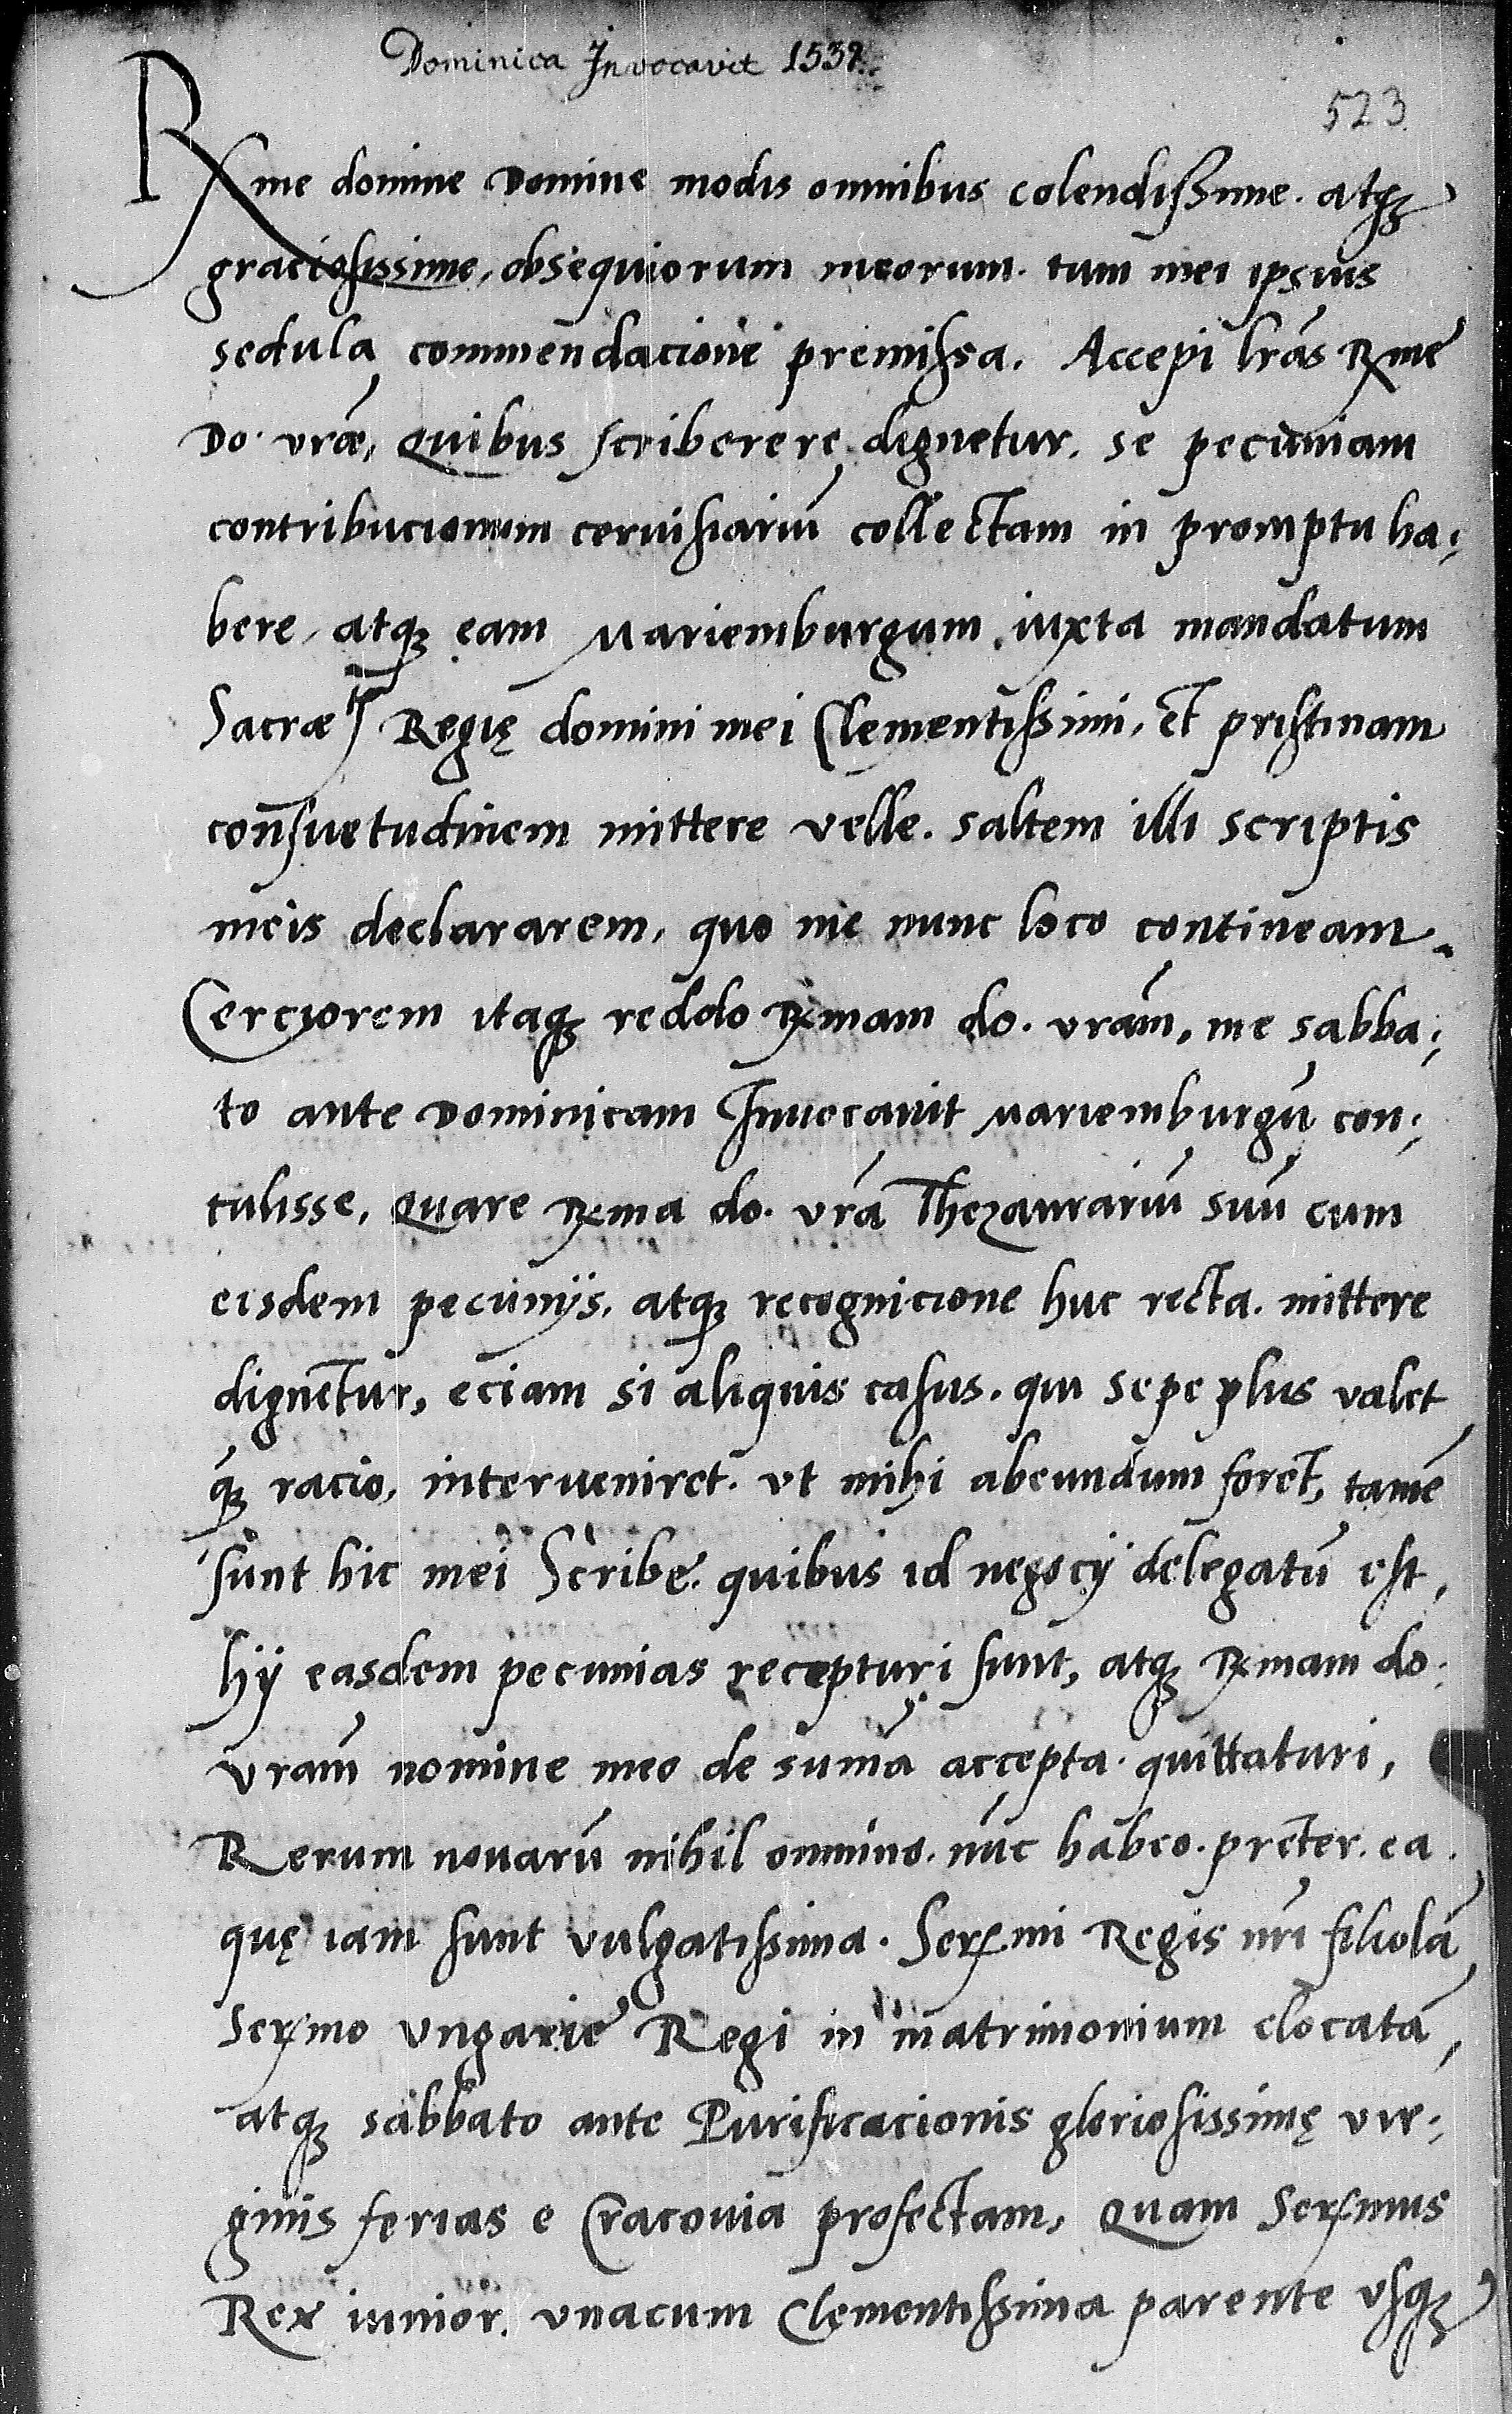 Dominica Invocavit 1539.
523
Rxme domine Domine modis omnibus colendissime. atqꝫ
graciosissime, obsequiorum meorum. tum mei ipsius
sedula commendacione premissa. Accepi lrãs Rxme
Do. vræ, quibus scriberere dignetur. se pecuniam
contribucionum ceruisiariũ collectam in promptu ha;
bere, atqꝫ eam Mariemburgum iuxta mandatum
Sacræ Regię domini mei Clementissimi, et pristinam
consuetudinem mittere velle. saltem illi scriptis
meis declararem, quo me nunc loco contineam.
Cerciorem itaqꝫ reddo Rxmam do. vrãm, me sabba;
to ante Dominicam Inuocauit Mariemburgũ con;
tulisse, quare Rxma do. vrã Thezaurariũ suũ cum
eisdem pecunijs. atqꝫ recognicione huc recta. mittere
dignetur, eciam si aliquis casus. qui sepe plus valet
qꝫ racio, interueniret. vt mihi abeundum foret, tamẽ
sunt hic mei Scribę. quibus id negocij delegatũ est,
hij easdem pecunias recepturi sunt, atqꝫ Rxmam do.
vrãm nomine meo de summa accepta. quittaturi,
Rerum nouarũ nihil omnino. nũc habeo. preter. ea.
quę iam sunt vulgatissima. Serxmi Regis nri filiolã
Serxmo vngarie Regi in matrimonium elocatã,
atqꝫ sabbato ante Purificacionis gloriosissimę vir;
ginis ferias e Cracouia profectam, quam Serxmus
Rex iunior. vnacum Clementissima parente vsqꝫ